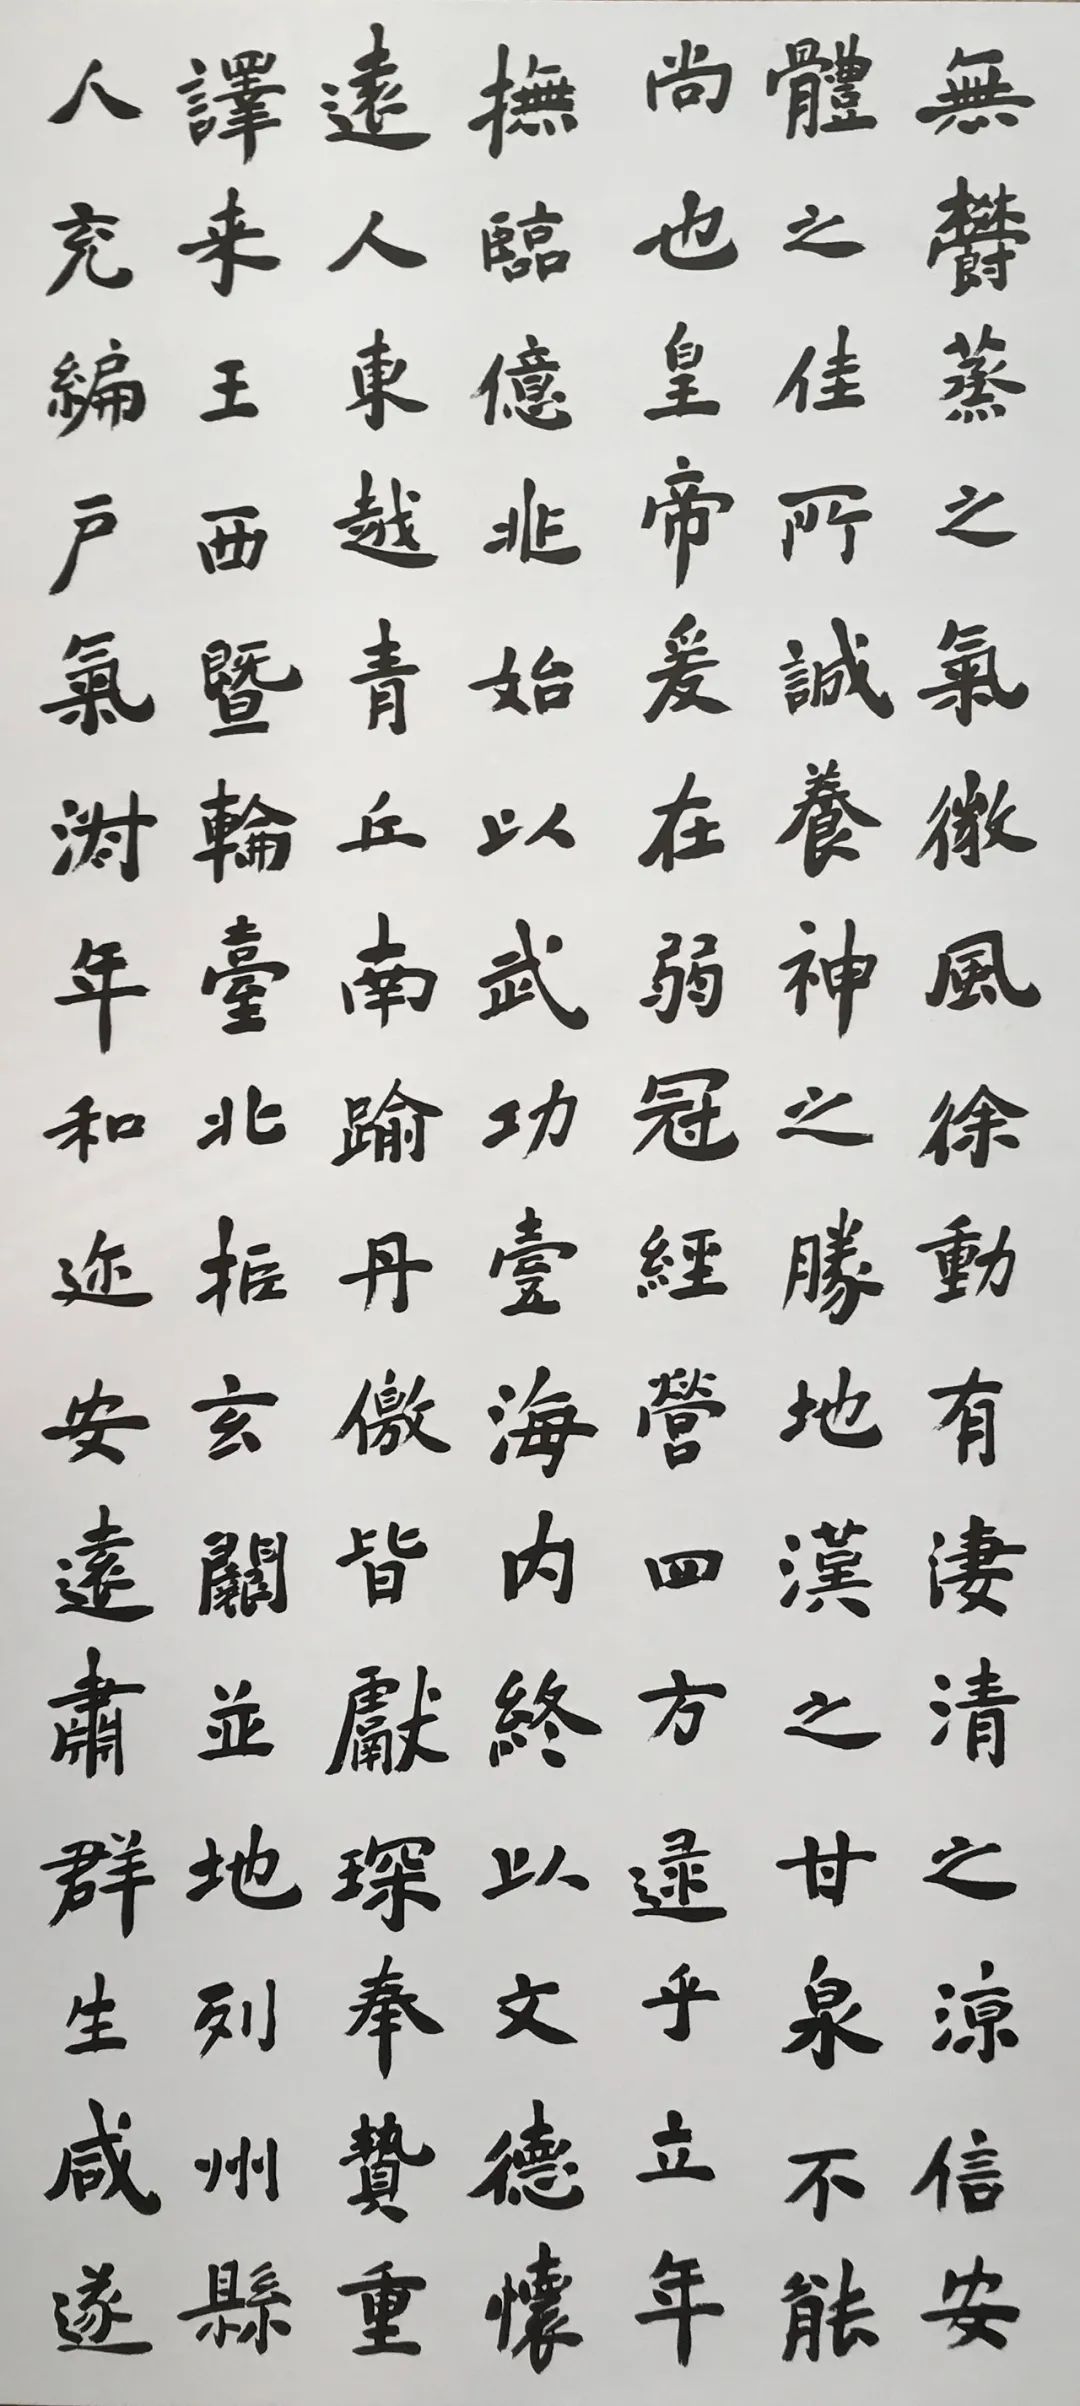 無欝蒸之氣微風徐動有淒清之涼信安
體之佳所誠養神之勝地漢之甘泉不能
尚也皇帝爰在弱冠經營四方逯乎立年
撫臨億兆始以武功壹海内終以文德懷
遠人東越青丘南踰丹儌皆獻琛奉贄重
譯来王西暨輪臺北拒玄闕並地列州縣
人充編戶氣淑年和迩安遠肅群生咸遂